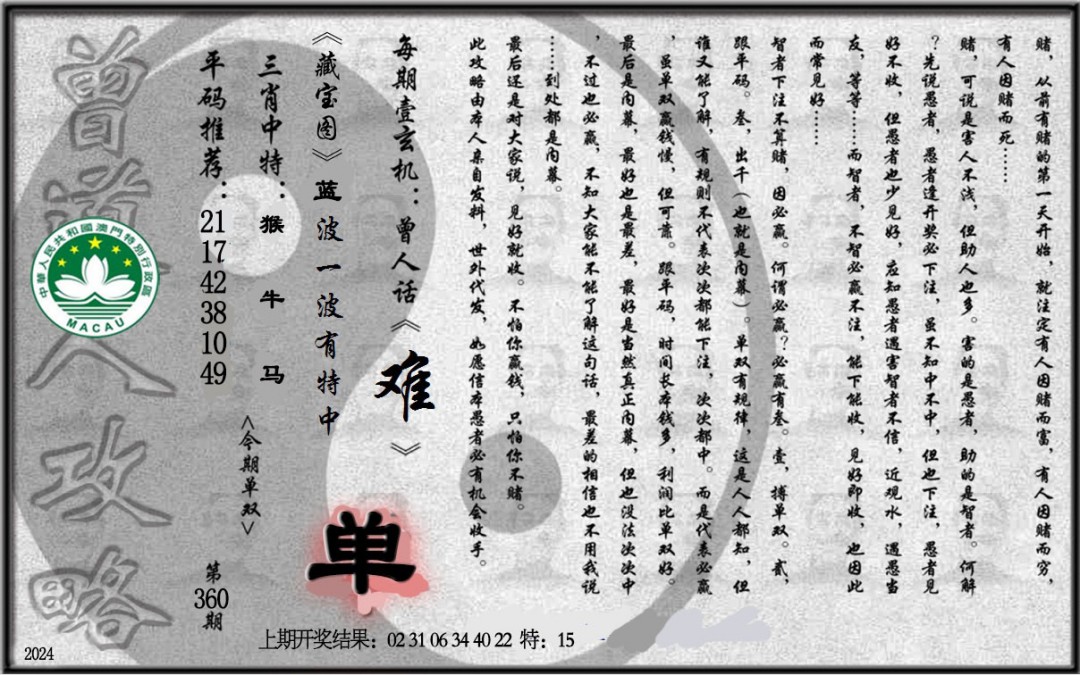 赌，从前有赌的第一天开始，就注定有人因赌而富，有人因赌而穷，
有人因赌而死……
赌，可说是害人不浅，但助人也多。害的是愚者，助的是智者。何解
？先说愚者，愚者逢开奖必下注，虽不知中不中，但也下注，愚者见
好不收，但愚者也少见好，应知愚者遇害智者不信，近观水，遇愚当
友，等等……而智者，不智必赢不注，能下能收，见好即收，也因此
而常见好……
智者下注不算赌，因必赢。何谓必赢？必赢有叁。壹，搏单双。贰，
跟平码。叁，出千（也就是内幕）。单双有规律，这是人人都知，但
谁又能了解，有规则不代表次次都能下注，次次都中。而是代表必赢
，虽单双赢钱慢，但可靠。跟平码，时间长本钱多，利润比单双好。
最后是内幕，最好也是最差，最好是当然真正内幕，但也没法次次中
，不过也必赢，不知大家能不能了解这句话，最差的相信也不用我说
……到处都是内幕。
最后还是对大家说，见好就收。不怕你赢钱，只怕你不赌。
此攻略由本人亲自发料，世外代发，如愿信本愚者必有机会收手。
每期壹玄机：曾人话《难》
《藏宝图》蓝波一波有特中
三肖中特：猴 牛 马
<今期单双>
单
平码推荐：21 17 42 38 10 49
第360期
曾道人攻略
中華人民共和國澳門特別行政區
MACAU
上期开奖结果：02 31 06 34 40 22 特：15
2024